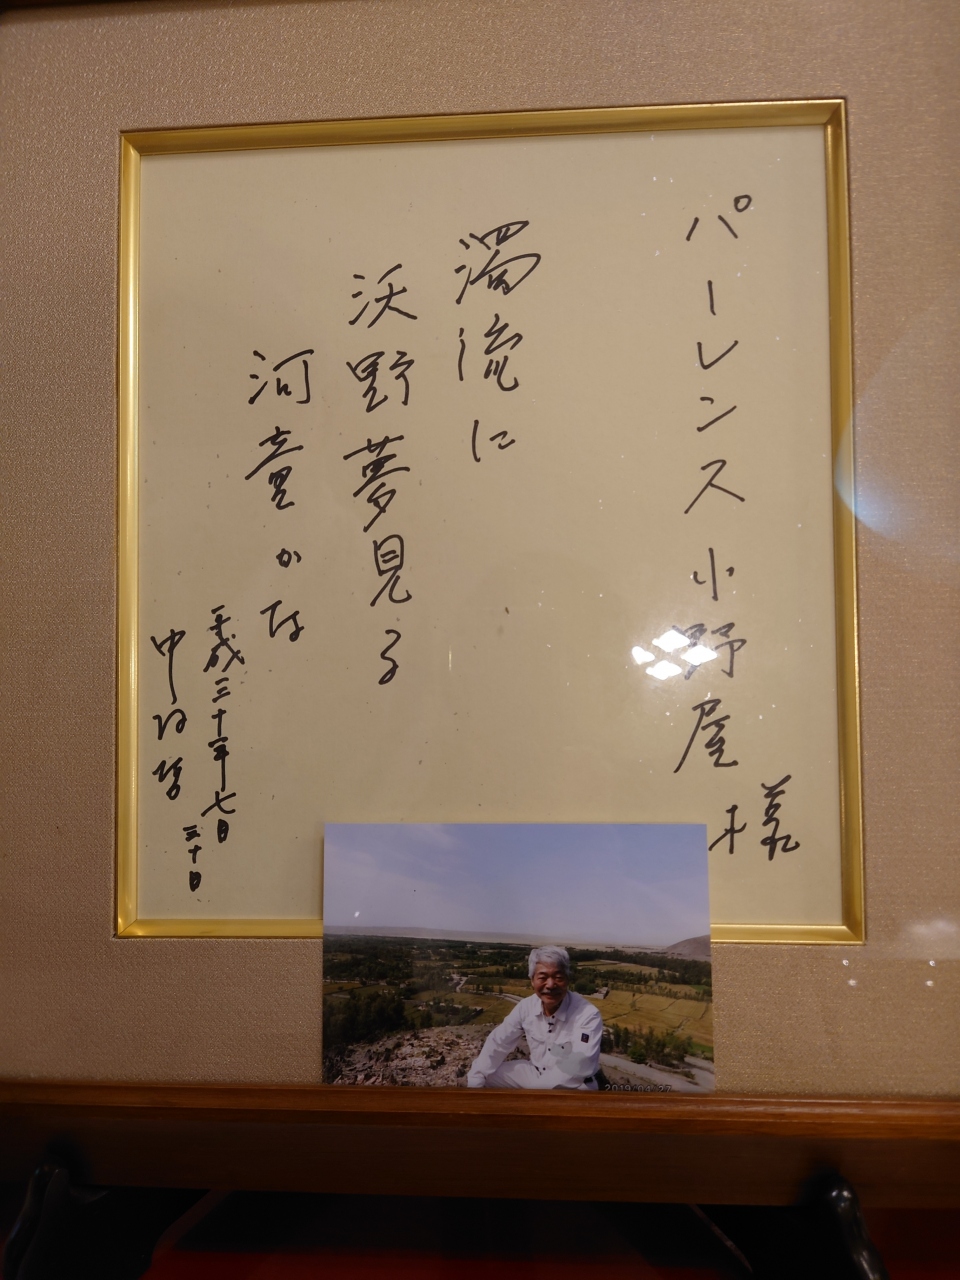 パーレンス小野屋様
濁流に
沃野夢見る
河童かな
平成三十年七月
三十日
中村哲
2019/04/27